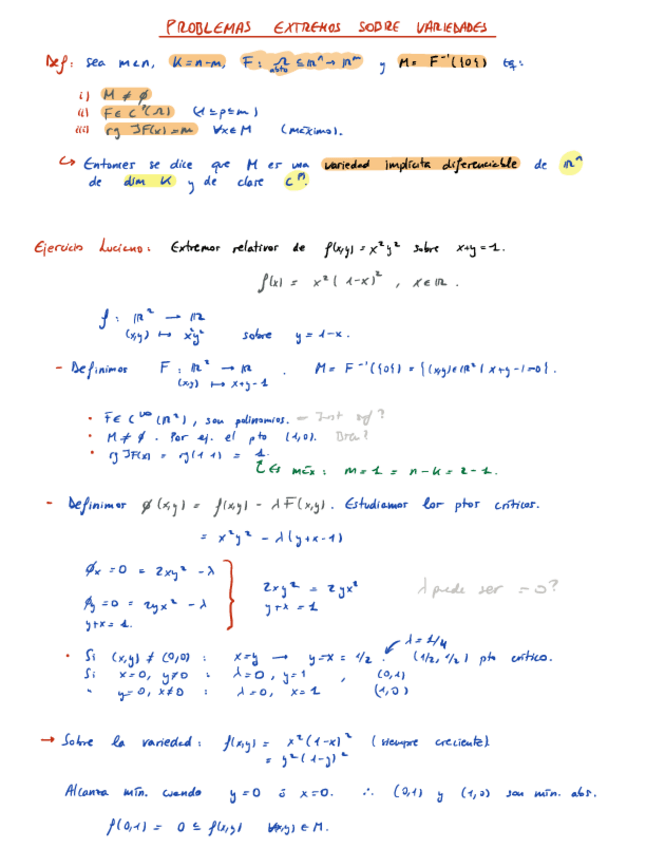 PROBLEMAS EXTREMOS SOBRE VARIEDADES
Def: sea m<n, K=n-m, F: Ω ⊆ ℝⁿ → ℝᵐ y M= F⁻¹({0}) tq:
abto
i) M ≠ ∅
ii) F ∈ Cᵖ(Ω) (1≤p≤m)
iii) rg JF(x) = m ∀x∈M (máximo).
↳ Entonces se dice que M es una variedad implícita diferenciable de ℝⁿ
de dim K y de clase Cᵖ.
Ejercicio Luciano: Extremos relativos de f(x,y) = x²y² sobre x+y=1.
f(x) = x²(1-x)², x∈ℝ.
f: ℝ² → ℝ
(x,y) ↦ x²y² sobre y = 1-x.
- Definimos F: ℝ² → ℝ . M = F⁻¹({0}) = {(x,y)∈ℝ² | x+y-1=0}.
(x,y) ↦ x+y-1
• F∈ C^∞(ℝ²), son polinomios. -
• M≠∅. Por ej. el pto (1,0).
• rg JF(x) = rg(1 1) = 1.
Es máx: m=1 = n-k = 2-1.
- Definimos ϕ(x,y) = f(x,y) - λF(x,y). Estudiamos los ptos críticos.
= x²y² - λ(y+x-1)
ϕx = 0 = 2xy² - λ
ϕy = 0 = 2yx² - λ
y+x = 1.
2xy² = 2yx²
y+x = 1
λ puede ser = 0?
λ=1/4
• Si (x,y) ≠ (0,0) : x=y → y=x = 1/2 . (1/2, 1/2) pto crítico.
Si x=0, y≠0 : λ=0, y=1 , (0,1)
" y=0, x≠0 : λ=0, x=1 (1,0)
→ Sobre la variedad: f(x,y) = x²(1-x)² (siempre creciente)
= y²(1-y)²
Alcanza mín. cuando y=0 ó x=0. ∴ (0,1) y (1,0) son mín. abs.
f(0,1) = 0 ≤ f(x,y) ∀(x,y) ∈ M.